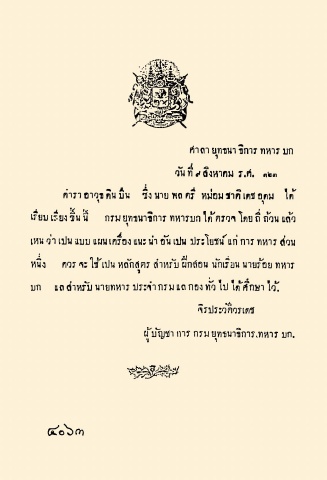 ศาลายุทธนาธิการทหารบก
วันที่ ๙ สิงหาคม ร.ศ. ๑๒๓
ตำราอาวุธดินปืน ซึ่งนายพลตรี หม่อมชาติเดชอุดม ได้
เรียบเรียงขึ้นนี้ กรมยุทธนาธิการทหารบกได้ตรวจโดยถี่ถ้วนแล้ว
เหนว่าเปนแบบแผนเครื่องแนะนำอันเปนประโยชน์แก่การทหารส่วน
หนึ่ง ควรจะใช้เปนหลักสูตรสำหรับฝึกสอนนักเรียนนายร้อยทหาร
บก แลสำหรับนายทหารประจำกรมแลกองทั่วไปได้ศึกษาไว้.
จิรประวัติวรเดช
ผู้บัญชาการกรมยุทธนาธิการทหารบก.
๔๐๖๓